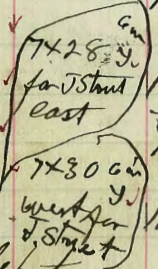 7X28 Gin
Y.
for J Street
east
7X30 Gin
Y.
west for
J. Street